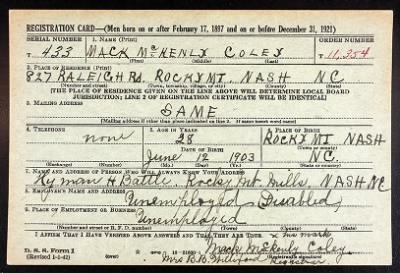 REGISTRATION CARD—(Men born on or after February 17, 1897 and on or before December 31, 1921)
SERIAL NUMBER 1. NAME (Print) ORDER NUMBER
T 433 MACK McHENLY COLEY T 11,354
2. PLACE OF RESIDENCE (Print)
827 RALEIGH RD. ROCKY MT. NASH N C
(Number and street) (Town, township, village, or city) (County) (State)
[THE PLACE OF RESIDENCE GIVEN ON THE LINE ABOVE WILL DETERMINE LOCAL BOARD
JURISDICTION; LINE 2 OF REGISTRATION CERTIFICATE WILL BE IDENTICAL]
3. MAILING ADDRESS
SAME
(Mailing address if other than place indicated on line 2. If same insert word same)
4. TELEPHONE 5. AGE IN YEARS 6. PLACE OF BIRTH
none 28 ROCKY MT NASH
DATE OF BIRTH (Town or county)
June 12 1903 N.C.
(Exchange) (Number) (Mo.) (Day) (Yr.) (State or country)
7. NAME AND ADDRESS OF PERSON WHO WILL ALWAYS KNOW YOUR ADDRESS
Hyman H. Battle, Rocky Mt. Mills, NASH NC
8. EMPLOYER'S NAME AND ADDRESS
Unemployed - Disabled
9. PLACE OF EMPLOYMENT OR BUSINESS
Unemployed
(Number and street or R. F. D. number) (Town) (County) (State)
I AFFIRM THAT I HAVE VERIFIED ABOVE ANSWERS AND THAT THEY ARE TRUE. x his mark
D. S. S. Form 1
(Revised 1-1-42) Mack McHenly Coley
Mrs B.B. Registrar